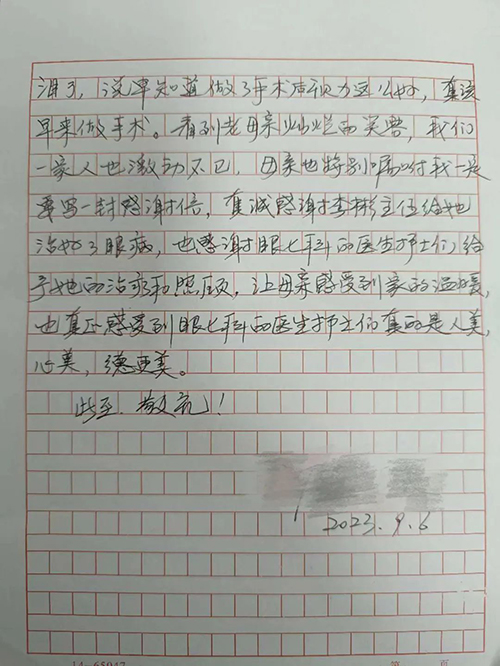 泪了，说早知道做了手术后视力这么好，真该
早来做手术。看到老母亲灿烂的笑容，我们
一家人也激动不已，母亲也特别嘱咐我一定
要写一封感谢信，真诚感谢李彬主任给她
治好了眼病，也感谢眼七科的医生护士们给
予她的治疗和照顾，让母亲感受到家的温暖，
也真正感受到眼七科的医生护士们真的是人美，
心美，德更美。
此至 敬礼！
2023.9.6
第 页